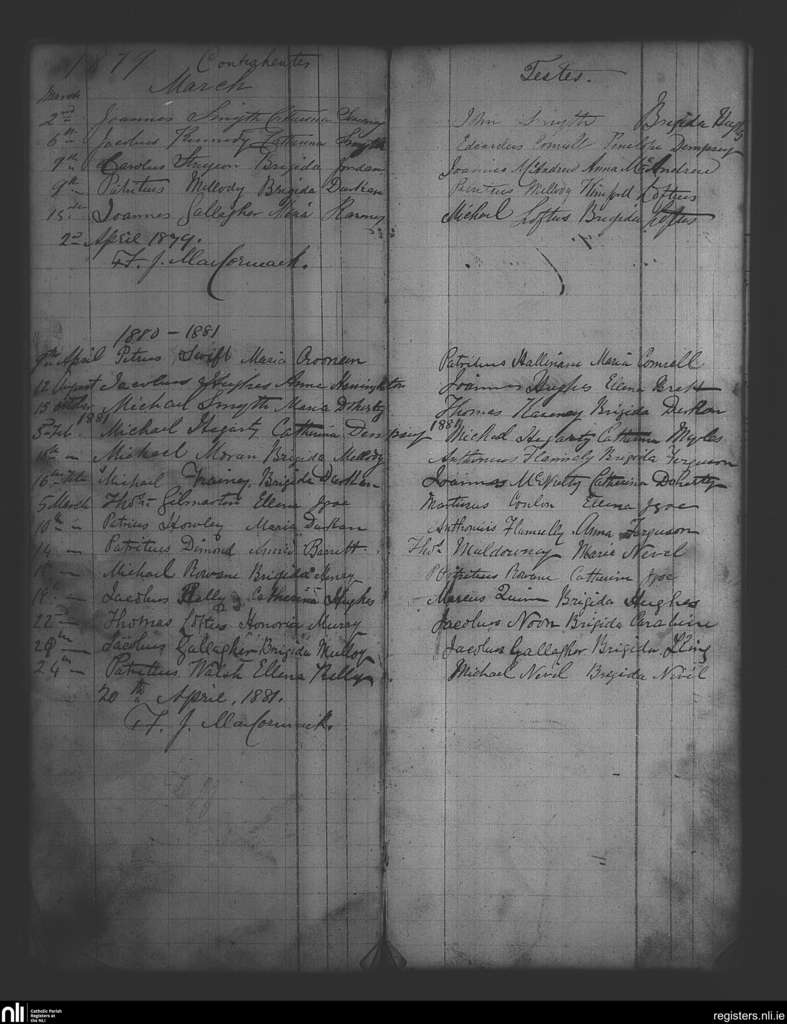 1879 Contrahentes Testes.
March
March
2nd Joannes Smyth Catherina John Smyth Brigida
6th Jacobus Kennedy Catherina Smyth Edvardus Connell Penelope Dempsey
7th Carolus Brigida Jordan Joannes McAndrew Anna McAndrew
9th Patritius Mellody Brigida Durkan Mellody Winifred Loftus
15th Joannes Gallagher Maria Harney Michael Loftus Brigida Loftus
2nd April 1879.
F. J. MacCormack.
1880 - 1881
9th April Petrus Swift Maria Patritius Hallinane Maria Connell
12 August Jacobus Hughes Anne Joannes Hughes Elena Brett
15 October Michael Smyth Maria Doherty Thomas Brigida Durkan
5th Feb. 1881 Michael Hegarty Catherina Dempsey 1881 Michael Hegarty Catherina Myles
" Michael Moran Brigida Mellody Anthonius Flannelly Brigida Ferguson
16th Feb Michael Brigida Durkan Joannes McNulty Catherina Doherty
5 March Thos. Gilmartin Ellena Igoe Conlon Ellena Igoe
10th " Patrius Howley Maria Durkan Anthonius Flannelly Anna Ferguson
14 " Patritius Dimond Annie Barrett Thos. Muldowney Maria Nevil
Michael Rowane Brigida Patritius Rowane Catherina Igoe
18 " Jacobus Catherina Hughes Marcus Quinn Brigida Hughes
22nd " Thomas Loftus Honoria Murray Jacobus Noon Brigida
Jacobus Gallagher Brigida Mulloy Jacobus Gallagher Brigida
24th Patritius Walsh Ellena Reilly Michael Nevil Brigida Nevil
20th April, 1881.
F. J. MacCormack.
nli Catholic Parish Registers at the NLI registers.nli.ie